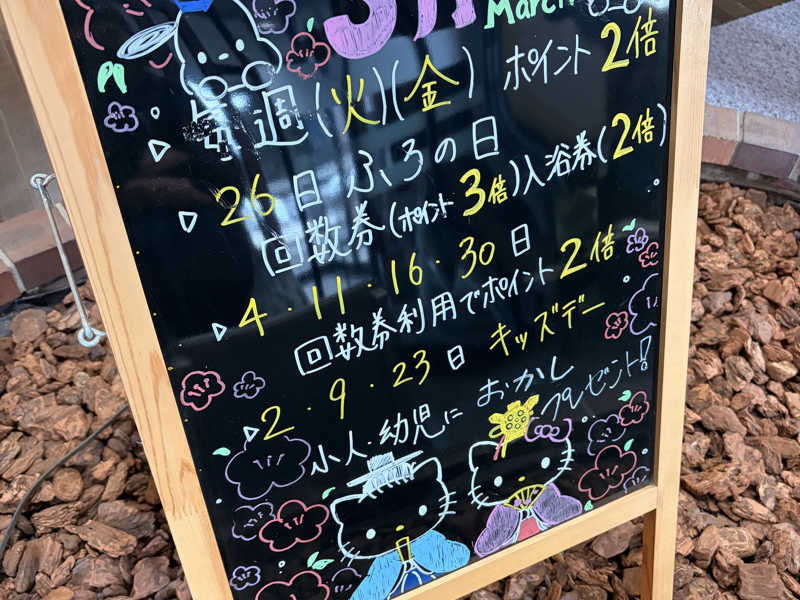 3月 March
毎週(火)(金) ポイント2倍
▷26日 ふろの日
回数券(ポイント3倍)入浴券(2倍)
▷4・11・16・30日
回数券利用でポイント2倍
▷2・9・23日 キッズデー
小人・幼児に おかしプレゼント!